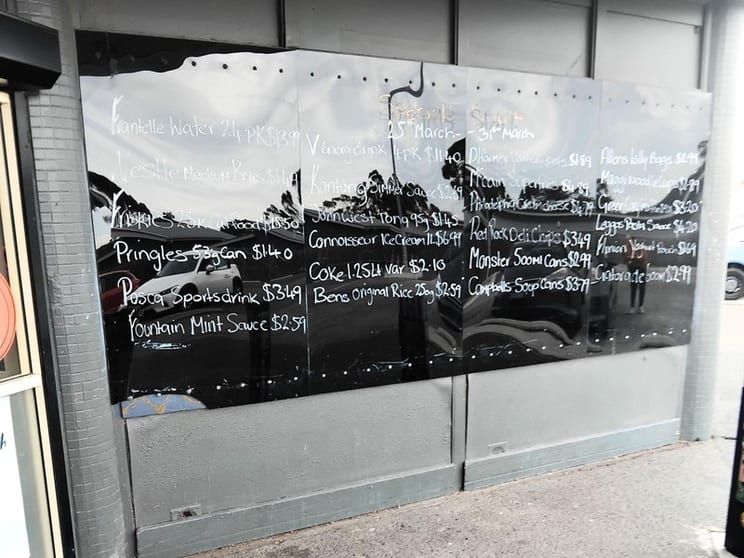 Specials Start
25th March - 31st March
Water 24PK $13.99
Nestle Medium Bars
Friskies Cat Food $1.50
Pringles 53g Can $1.40
Posca Sportsdrink $3.49
Fountain Mint Sauce $2.59
V Energy drink 4PK $11.40
Kantong Simmer Sauce
John West Tuna 95g $1.45
Connoisseur Ice Cream 1L $6.99
Coke 1.25Lt var $2.10
Bens Original Rice 250g $2.59
M'cain
Philadelphia Cream Cheese
Red Rock Deli Chips $3.49
Monster 500ml Cans $2.99
Campbells Soup Cans $3.79
Allens Lolly Bags $2.99
Maggi Noodle
$3.20
Leggos Pasta Sauce $4.20
Yoghurt
Gatorade 600ml $2.99